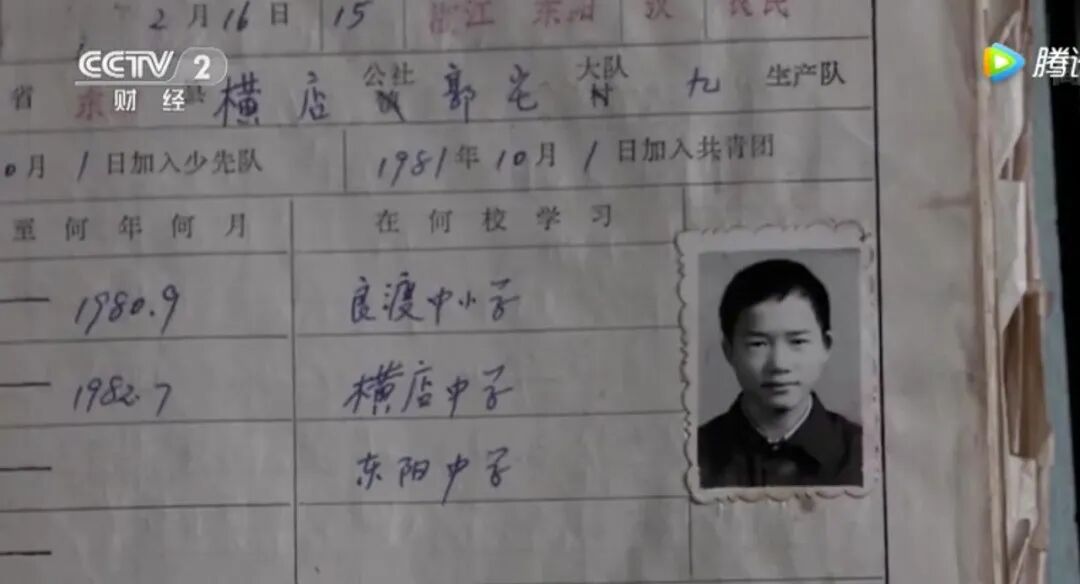 2月16日 15 浙江 东阳 汉 农民
CCTV 2
财经
腾讯
省 东 县 横店 公社 镇 郭宅 大队 村 九 生产队
月1日加入少先队 1981年10月1日加入共青团
至何年何月 在何校学习
1980.9 良渡中小学
1982.7 横店中学
东阳中学